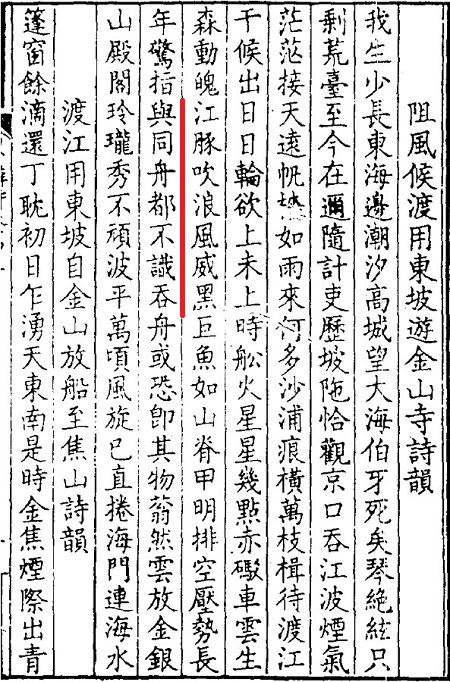 阻風候渡用東坡遊金山寺詩韻
我生少長東海邊潮汐高城望大海伯牙死矣琴絕絃只
剩荒臺至今在邇隨計吏歷坡陁恰觀京口吞江波煙氣
茫茫接天遠帆如雨來何多沙浦痕橫萬枝楫待渡江
干候出日日輪欲上未上時舩火星星幾點赤礮車雲生
森動魄江豚吹浪風威黑巨魚如山脊甲明排空壓勢長
年驚指與同舟都不識吞舟或恐卽其物蓊然雲放金銀
山殿閣玲瓏秀不頑波平萬頃風旋已直捲海門連海水
渡江用東坡自金山放船至焦山詩韻
篷窗餘滴還丁耽初日乍湧天東南是時金焦煙際出青